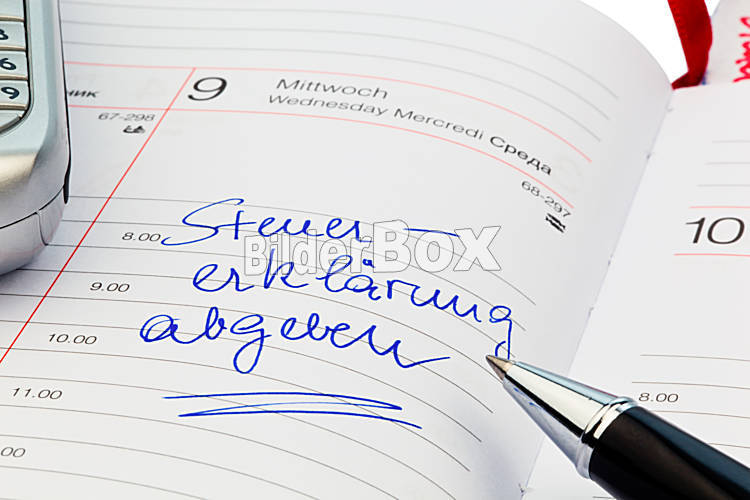 9 Mittwoch
Wednesday Mercredi Среда
67-298
68-297
Steuer-
erklärung
abgeben
BilderBOX
8.00
9.00
10.00
11.00
10
8.00
9